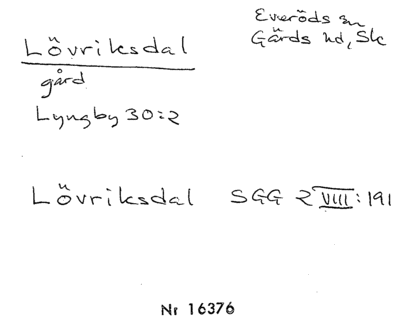 Everöds sn
Lövriksdal
Gärds hd, Sk
gård
Lyngby 30:2
Lövriksdal SGG 2 VIII:191
Nr 16376